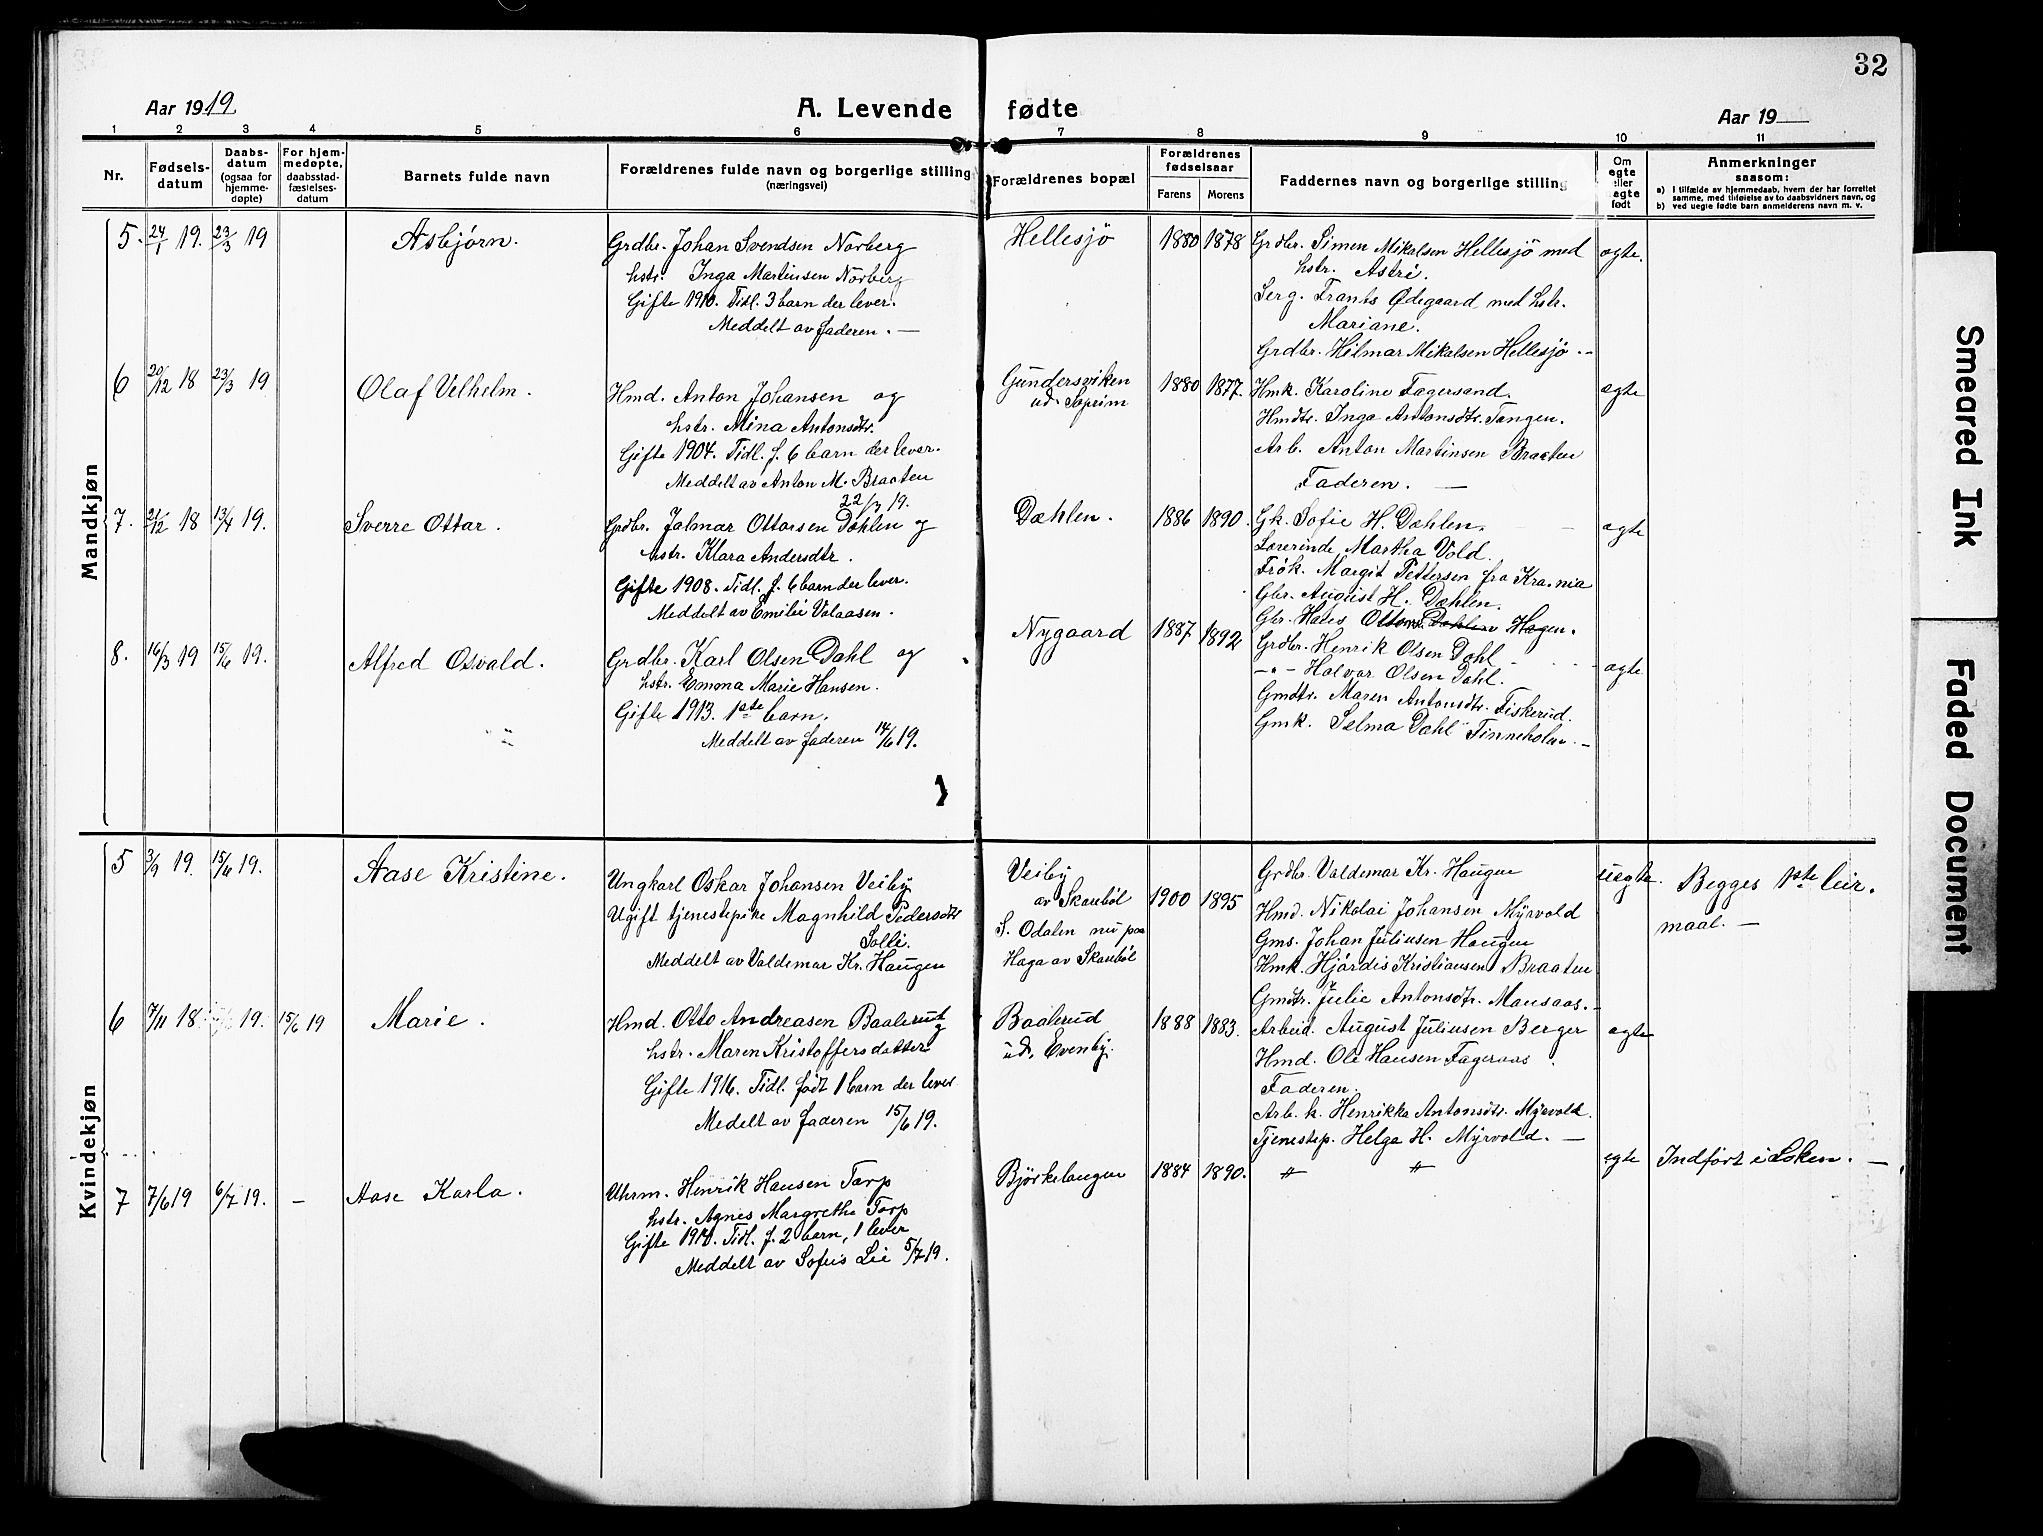 32
Aar 1919
A. Levende fødte
Aar 19
1 2 3 4 5 6 7 8 9 10 11
Nr.
Fødsels-
datum
Daabs-
datum
(ogsaa for
hjemme-
døpte)
For hjem-
medøpte,
daabsstad-
fæstelses-
datum
Barnets fulde navn
Forældrenes fulde navn og borgerlige stilling
(næringsvei)
Forældrenes bopæl
Forældrenes
fødselsaar
Farens Morens
Faddernes navn og borgerlige stilling
Om
egte
eller
uegte
født
Anmerkninger
saasom:
a) I tilfælde av hjemmedaab, hvem der har forrettet
samme, med tilføielse av to daabsvidners navn, og
b) ved uegte fødte barn anmelderens navn m. v.
Mandkjøn
5. 24/1 19. 23/3 19
Asbjørn.
Grdbr. Johan Svendsen Norberg
hstr. Inga Martinsen Norberg
Gifte 1910. Tidl. 3 barn der lever.
Meddelt av faderen. —
Hellesjö
1880 1878
Grdbr. Simen Mikalsen Hellesjö med
hstr. Astri.
Serg. Frants Ødegaard med hstr.
Mariane.
Grdbr. Hilmar Mikalsen Hellesjö. —
egte.
6 20/12 18 23/3 19
Olaf Vilhelm.
Hmd. Anton Johansen og
hstr. Mina Antonsdtr.
Gifte 1904. Tidl. f. 6 barn der lever.
Meddelt av Anton M. Braaten
22/3 19.
Gundersviken
ud.
1880 1877.
Hmk. Karoline Fagersand.
Hmdtr. Inga Antonsdtr. Tangen.
Arb. Anton Martinsen Braaten
Faderen. —
egte
7. 21/12 18 13/4 19.
Sverre Ottar.
Grdbr. Jalmar Ottarsen Dæhlen og
hstr. Klara Andersdtr.
Gifte 1908. Tidl. f. 6 barn der lever.
Meddelt av Emilie Valaasen.
Dæhlen.
1886 1890.
Gk. Sofie H. Dæhlen.
Lærerinde Martha Vold.
Frök. Margit Pettersen fra Kra.nia
Gbr. August H. Dæhlen.
Gbr. Hans Ottars. Dæhlen Hagen.
egte
8. 16/3 19 15/6 19.
Alfred Osvald.
Grdbr. Karl Olsen Dahl og
hstr. Emma Marie Hansen.
Gifte 1913. 1ste barn.
Meddelt av faderen 14/6 19.
Nygaard
1887 1892
Grdbr. Henrik Olsen Dahl
—"— Halvor Olsen Dahl.
Gmdtr. Maren Antonsdtr. Fiskerud.
Gmk. Selma Dahl Finneholm. —
egte
Kvindekjøn
5 3/9 19. 15/6 19.
Aase Kristine.
Ungkarl Oskar Johansen Veiby
Ugift tjenestepike Magnhild Pedersdtr
Solli.
Meddelt av Valdemar Kr. Haugen
Veiby
av Skarebøl
S. Odalen nu paa
Haga av Skarebøl
1900 1895
Grdbr. Valdemar Kr. Haugen
Hmd. Nikolai Johansen Myrvold
Gms. Johan Juliusen Haugen
Hmk. Hjördis Kristiansen Braaten
Gmdtr. Julie Antonsdtr. Mausaas. —
uegte.
Begges 1ste leir.
maal. —
6 7/11 18 19. 15/6 19
Marie.
Hmd. Otto Andreasen Baalerud
hstr. Maren Kristoffersdatter
Gifte 1916. Tidl. født 1 barn der lever
Medelt av faderen 15/6 19.
Baalerud
ud. Evenby.
1888 1883.
Arbeid. August Juliusen Berger
Hmd. Ole Hansen Fageraas
Faderen.
Arb. k. Henrikke Antonsdtr. Myrvold.
Tjenestep. Helga H. Myrvold. —
egte
7 7/6 19 6/7 19. —
Aase Karla.
Uhrm. Henrik Hansen Tarp
hstr. Agnes Margrethe Tarp
Gifte 1910. Tidl. f. 2 barn, 1 lever
Meddelt av Sofus Lie 5/7 19.
Björkelangen
1884 1890.
" "
egte
Indført i Løken. —
Smeared Ink
Faded Document